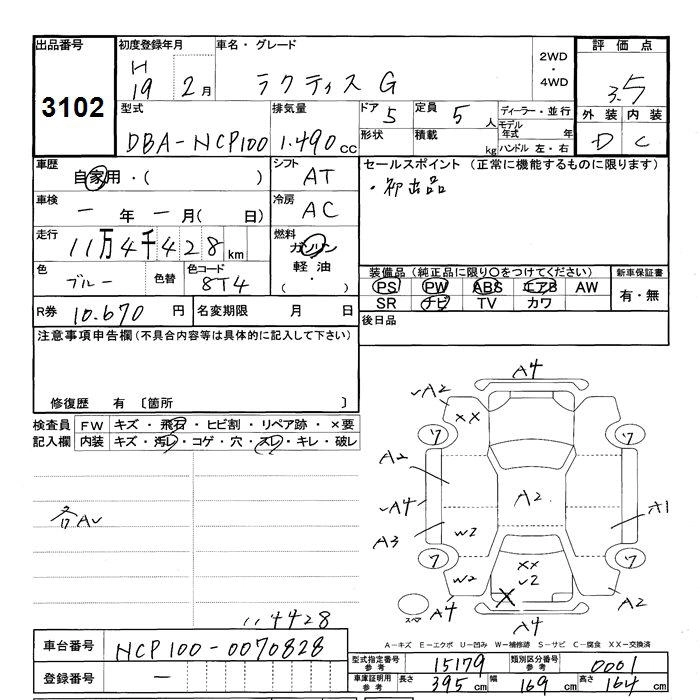 出品番号 初度登録年月 車名・グレード 2WD・4WD 評価点
3102 H19 2月 ラクティス G 3.5
外装 内装
D C
型式 排気量 ドア 5 定員 5人 ディーラー・並行
DBA-NCP100 1.490cc 形状 積載 kg モデル年式 年
ハンドル 左・右
車歴 自家用・( ) シフト AT
セールスポイント (正常に機能するものに限ります)
・初出品
車検 一年一月(日) 冷房 AC
走行 11万4千428km 燃料 ガソリン
軽油・( )
色 ブルー 色替 色コード 8T4
装備品(純正品に限り○をつけてください) 新車保証書
PS PW ABS エアB AW 有・無
SR ナビ TV カワ
R券 10.670円 名変期限 月 日
後日品
注意事項申告欄(不具合内容等は具体的に記入して下さい)
修復歴 有 〔箇所 〕
検査員 FW キズ・飛石・ヒビ割・リペア跡・×要
記入欄 内装 キズ・汚レ・コゲ・穴・スレ・キレ・破レ
A4
A2
XX
ワ ワ
A2
A4 A2 A1
A3 W2
ワ ワ
W2 XX
W2
X
A4 A2
スペア
A4
114428
A-キズ E-エクボ U-凹み W-補修跡 S-サビ C-腐食 XX-交換済
車台番号 NCP100-0070828
登録番号 一
型式指定番号 参考 15179 類別区分番号 参考 0001
車庫証明用 参考 長さ 395cm 幅 169cm 高さ 164cm